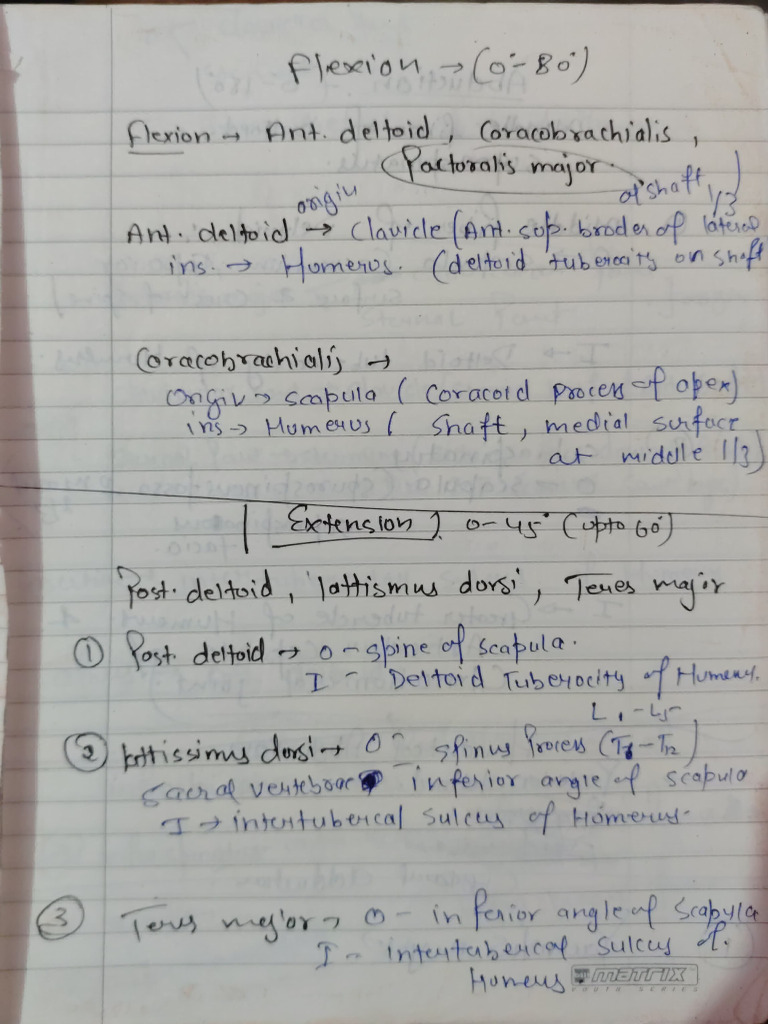 flexion → (0°-80°)
flexion → Ant. deltoid, Coracobrachialis,
Pactoralis major.
origin of shaft 1/3
Ant. deltoid → Clavicle (Ant. sup. broder of lateral
ins. → Humerus. (deltoid tuberocity on shaft
Coracobrachialis →
Origin → scapula ( coracoid process of apex)
ins → Humerus ( Shaft, medial surface
at middle 1/3)
Extension). 0-45° (upto 60°)
Post. deltoid, lattismus dorsi, Teres major
① Post. deltoid → O - spine of scapula.
I - Deltoid Tuberocity of Humerus.
L1-L5
② lattissimus dorsi → O - spinus Process (T8-T12)
Sacral vertebrae inferior angle of scapula
I → intertubercal sulcus of Homerus.
③ Teres major → O - inferior angle of Scapula
I - intertubercal sulcus of.
Humeus
MATRIX